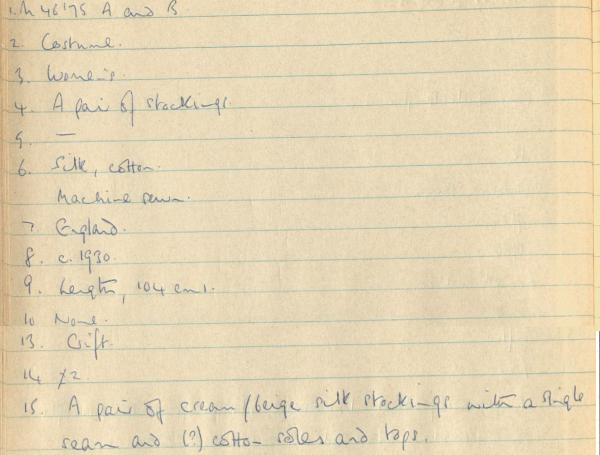 1. M 46'75 A and B
2. Costume.
3. Women's.
4. A pair of stockings.
5. —
6. Silk, cotton.
Machine sewn.
7. England.
8. c. 1930.
9. Length, 104 cm.
10 None.
13. Gift.
14 
15. A pair of cream/beige silk stockings with a single
seam and (?) cotton soles and tops.